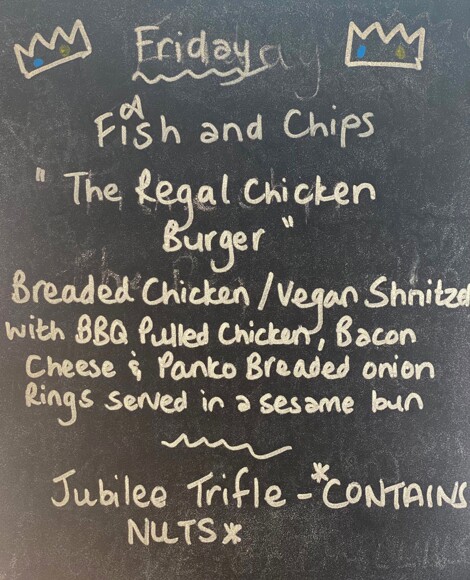 Friday
Fish and Chips
" The Regal Chicken
Burger "
Breaded Chicken / Vegan Shnitzel
with BBQ Pulled Chicken, Bacon
Cheese & Panko Breaded onion
Rings served in a sesame bun
Jubilee Trifle - *CONTAINS
NUTS*